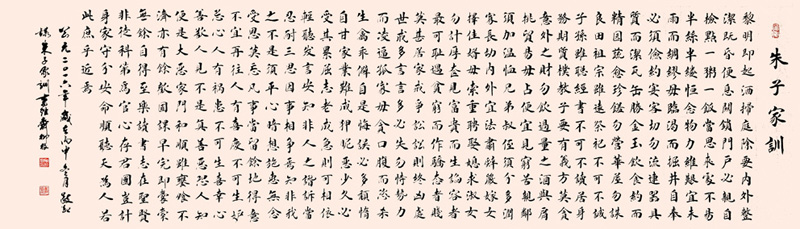 朱子家訓
黎明即起洒掃庭除要內外整
潔既昏便息關鎖門戶必親自
檢點一粥一飯當思來處不易
半絲半縷恒念物力維艱宜未
雨而綢繆毋臨渴而掘井自奉
必須儉約宴客切勿流連器具
質而潔瓦缶勝金玉飲食約而
精園蔬愈珍饈勿營華屋勿謀
良田祖宗雖遠祭祀不可不誠
子孫雖愚經書不可不讀居身
務期質樸教子要有義方莫貪
意外之財勿飲過量之酒與肩
挑貿易毋占便宜見窮苦親鄰
須加溫恤兄弟叔侄須分多潤
寡長幼內外宜法肅辭嚴嫁女
擇佳婿毋索重聘娶媳求淑女
勿計厚奩見富貴而生諂容者
最可恥遇貧窮而作驕態者賤
莫甚居家戒爭訟訟則終凶處
世戒多言言多必失勿恃勢力
而凌逼孤寡毋貪口腹而恣殺
生禽乖僻自是悔誤必多頹惰
自甘家業難成狎昵惡少久必
受其累屈志老成急則可相依
輕聽發言安知非人之譖訴當
忍耐三思因事相爭焉知非我
之不是須平心暗想施惠無念
受恩莫忘凡事當留餘地得意
不宜再往人有喜慶不可生妒
忌心人有禍患不可生喜幸心
善欲人見不是真善惡恐人知
便是大惡家門和順雖饔飧不
濟亦有餘歡國課早完即囊橐
無餘自得至樂讀書志在聖賢
非徒科第為官心存君國豈計
身家守分安命順聽天為人若
此庶乎近焉
公元二〇一六年歲在丙申冬月敬
錄朱子家訓